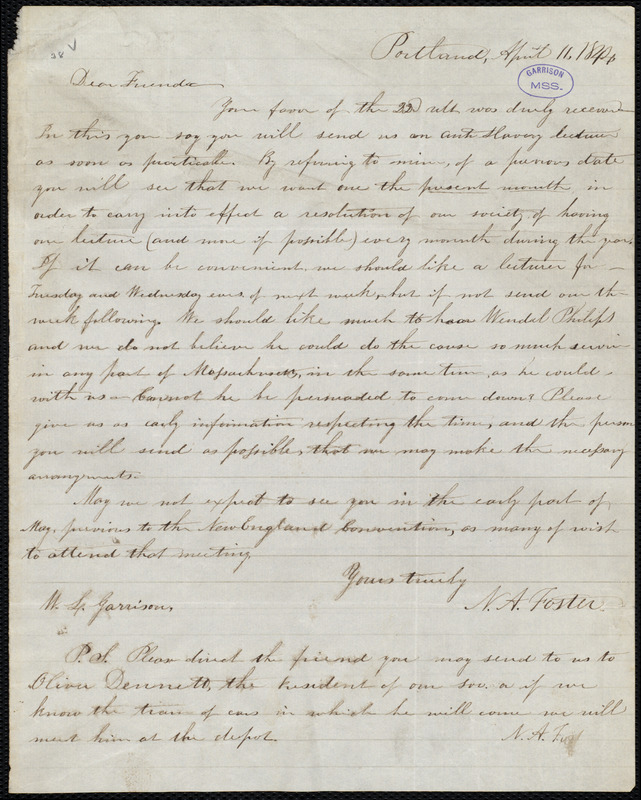 Portland, April 11, 184
GARRISON
MSS.
Dear Friends
Your favor of the 22d ult was duly received
In this you say you will send us an anti Slavery lecturer
as soon as practicable. By referring to mine, of a previous date
you will see that we want one the present month, in
order to carry into effect a resolution of our society, of having
one lecture (and more if possible) every month during the year.
If it can be convenient, we should like a lecturer for
Tuesday and Wednesday eves. of next week, but if not send one the
week following. We should like much to have Wendel Philips
and we do not believe he could do the cause so much service
in any part of Massachusetts, in the same time, as he could
with us - Cannot he be persuaded to come down? Please
give us as early information respecting the time, and the person
you will send as possible, that we may make the necessary
arrangements.
May we not expect to see you in the early part of
May, previous to the New England Convention, as many of wish
to attend that meeting
Yours truly
W. L. Garrison, N. A. Foster.
P. S. Please direct the friend you may send to us to
Oliver Dennett, the President of our soc. & if we
know the train of cars in which he will come we will
meet him at the depot. N. A. F